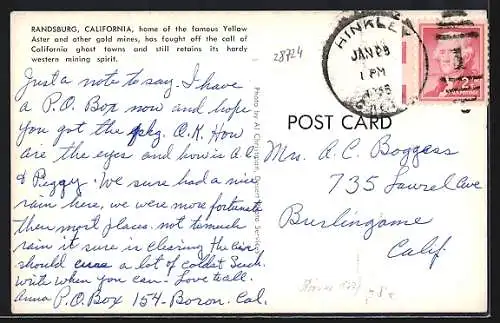 RANDSBURG, CALIFORNIA, home of the famous Yellow
Aster and other gold mines, has fought off the call of
California ghost towns and still retains its hardy
western mining spirit.
28724
HINKLEY
JAN 28
1 PM
CALIF
2¢
Just a note to say. I have
a P.O. Box now and hope
you got the pkg. O.K. How
are the eyes and how is A.C.
& Peggy. We sure had a nice
rain here, we were more fortunate
then most places. not to much
rain it sure is clearing the air
should cure a lot of colds & such.
write when you can - Love to all.
Anna P.O. Box 154 - Boron. Cal.
Photo by Al
POST CARD
Mrs. A.C. Boggess
735 Laurel Ave
Burlingame
Calif.